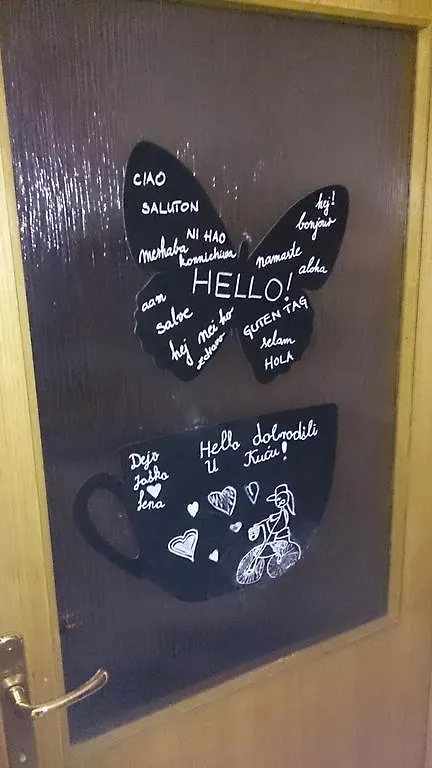 CIAO
SALUTON
NI HAO
merhaba
konnichiwa
HELLO!
hej!
bonjour
namaste
aloha
aan
salve
hej
nei ho
zdravo
GUTEN TAG
selam
HOLA
Dejo
Jaško
Lena
Hello dobrodošli
U Kuću!